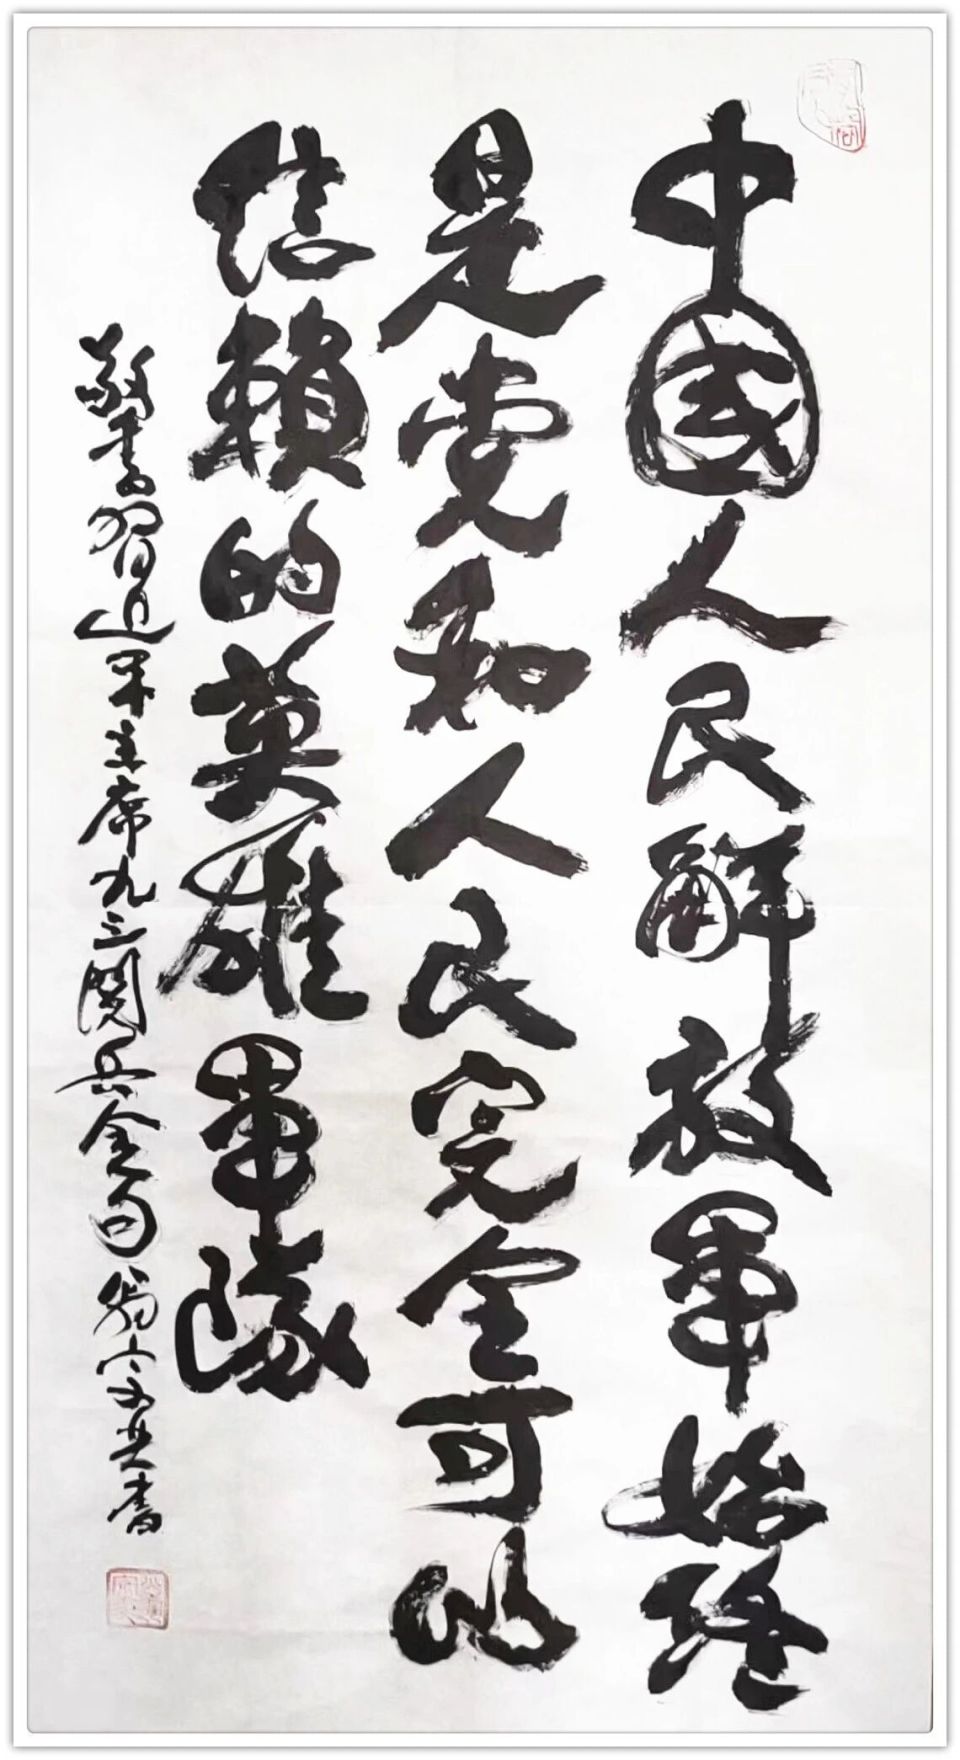 中國人民解放軍始終
是党和人民完全可以
信賴的英雄軍隊
敬書習近平主席九三閱兵金句 翁書